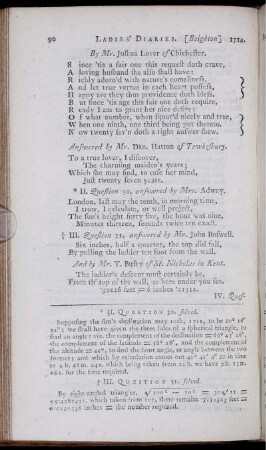 90 LADIES' DIARIES. [Beighton] 1714.
By Mr. Joshua Lover of Chichester.
Since 'tis a fair one this request doth crave,
A loving husband she also shall have:
Richly adorn'd with nature's comeliness,
And let true vertue in each heart possess,
Happy are they thus providence doth bless.
But since 'tis age this fair one doth require,
Ready I am to grant her nice desire:
Of what number, when squar'd nicely and true,
When one ninth, one third being put thereto,
Now twenty sev'n doth a right answer shew.
Answered by Mr. Dan. Hatton of Tewksbury.
To a true lover, I discover,
The charming maiden's years;
Which she may find, to ease her mind,
Just twenty seven years.
* II. Question 30, answered by Mrs. Adway.
London, last may the tenth, in morning time,
I trow, I calculate, or well project,
The sun's height forty five, the hour was nine,
Minutes thirteen, seconds twice ten exact.
† III. Question 31, answered by Mr. John Boswell.
Six inches, half a quarter, the top did fall,
By pulling the ladder ten foot from the wall.
And by Mr. T. of St. Nicholas in Kent.
The ladder's descent most certainly be,
From th' top of the wall, as here under you see.
feet = 6 inches
IV. Ques-
* II. QUESTION 30. Solved.
Supposing the sun's declination may 10th, 1712, to be 20° 16'
we shall have given the three sides of a spherical triangle, to
find an angle; viz. the complement of the declination =
the complement of the latitude = 38° 28', and the complement of
the altitude = 45°, to find the hour angle, or angle between the two
former; and which by calculation comes out 41° 41' 4" in time
to 2 h. 44m. which being taken from 12 h. we have 9h. 13m.
00s. for the time required.
† III. QUESTION 31. solved.
By right-angled triangles,
which taken from 100, there remains feet =
inches = the number required.